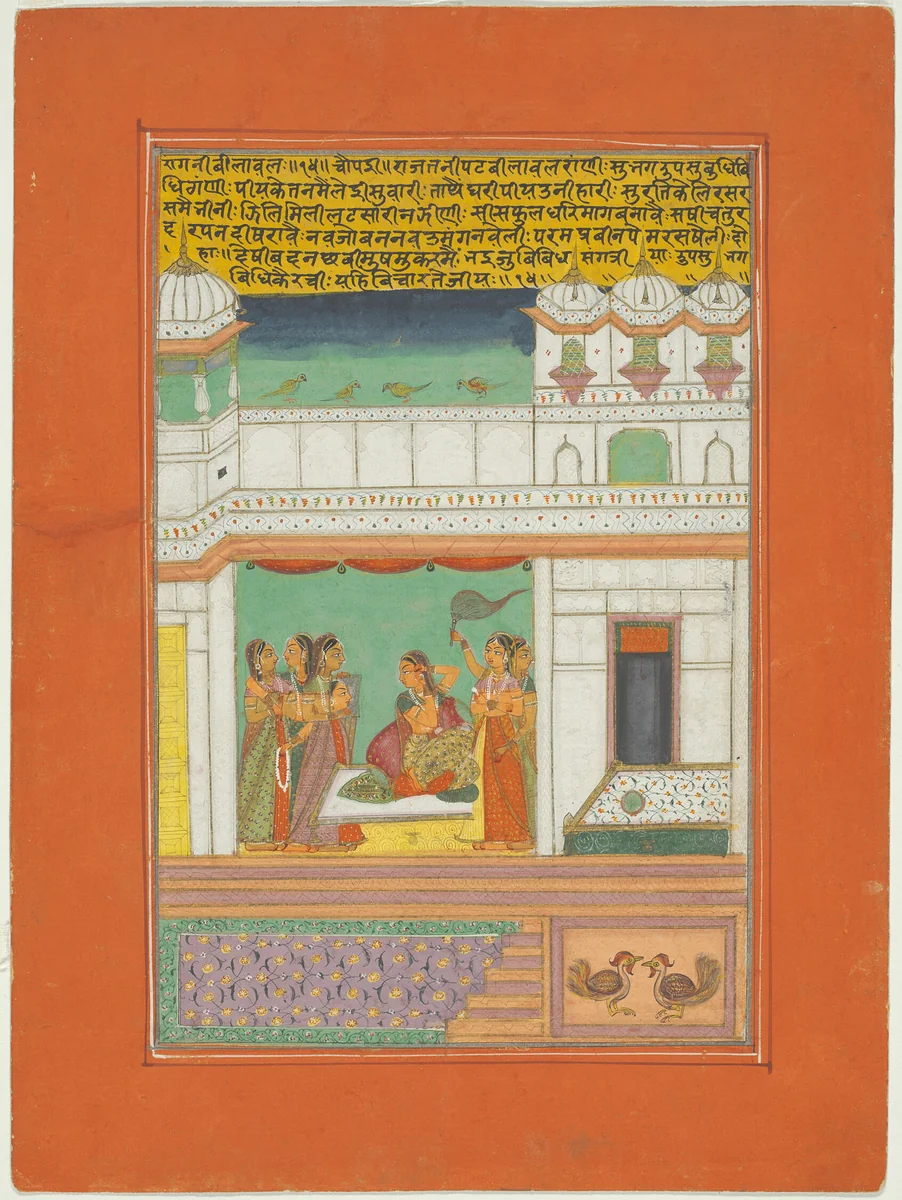 रागनी बीलावल॥१५॥ चौपई॥ राजत नीपट बीलावल रांणी: सुभग रुप सु बुधि बि
धि गणी: पीय केतन मै ले ई सुवारी: ताथै घरी पीय उनीहारी: सुरति केलि रस र
स मै भीनी: झिलिमिली लट सारी न झीणी: सीस फुल धरि माग बनावै: सषी चतुर
द्रपन दीषरावै: नव जोबन नव उमग नवेली: परम प्रबीन पेम रस षेली: दो
हा:॥ देषी बदन छबी भुष मुकर मै: नइ जु बिबिध संगत्री याः रुप सुभग
बिधि कै रची: यहि बिचारते जीयः॥१५॥